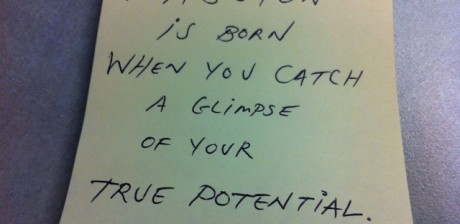 is BORN
WHEN YOU CATCH
A GLIMPSE
OF YOUR
TRUE POTENTIAL.